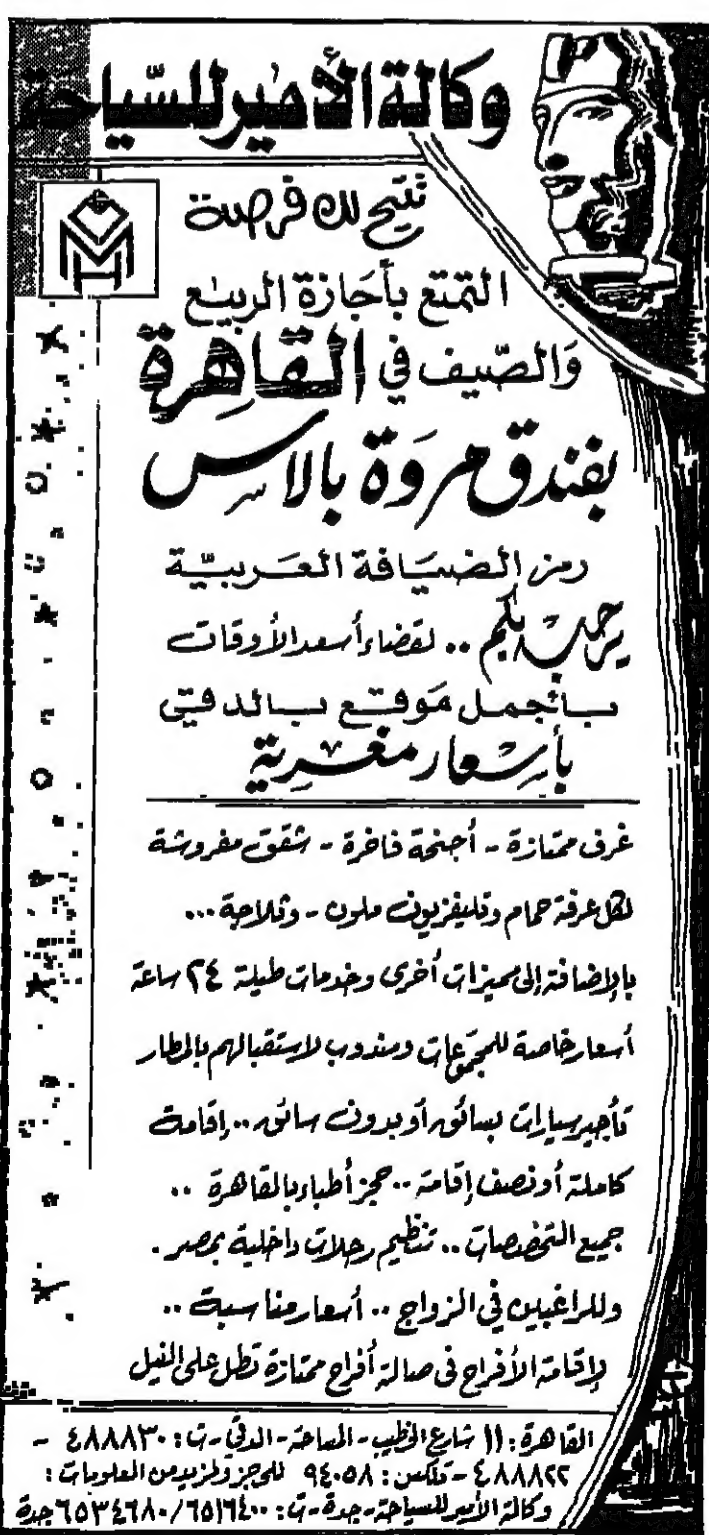 وكالة الأمير للسياحة
نتيح لك فرصة
التمتع بأجازة الربيع
والصيف في القاهرة
بفندق مروة بالاس
رمز الضيافة العربية
يرحب بكم .. لقضاء أسعد الأوقات
بأجمل موقع بالدقي
بأسعار مغرية
غرف ممتازة - أجنحة فاخرة - شقق مفروشة
لكل غرفة حمام وتليفزيون ملون - وثلاجة ...
بالإضافة إلى مميزات أخرى وخدمات طيلة ٢٤ ساعة
أسعار خاصة للمجموعات ومندوب لاستقبالهم بالمطار
تأجير سيارات بسائق أو بدون سائق .. إقامة
كاملة أو نصف إقامة .. حجز أطباء بالقاهرة ..
جميع التخصصات .. تنظيم رحلات داخلية بمصر .
وللراغبين في الزواج .. أسعار مناسبة ..
لإقامة الأفراح فى صالة أفراح ممتازة تطل على النيل
القاهرة : ١١ شارع الخطيب - المساحة - الدقي - ت : ٤٨٨٨٣٠ -
٤٨٨٨٢٢ - تلكس : ٩٤٠٥٨ للحجز ولمزيد من المعلومات :
وكالة الأمير للسياحة - جدة - ت : ٦٥١٦٤٠٠ / ٦٥٣٤٦٨٠ جدة